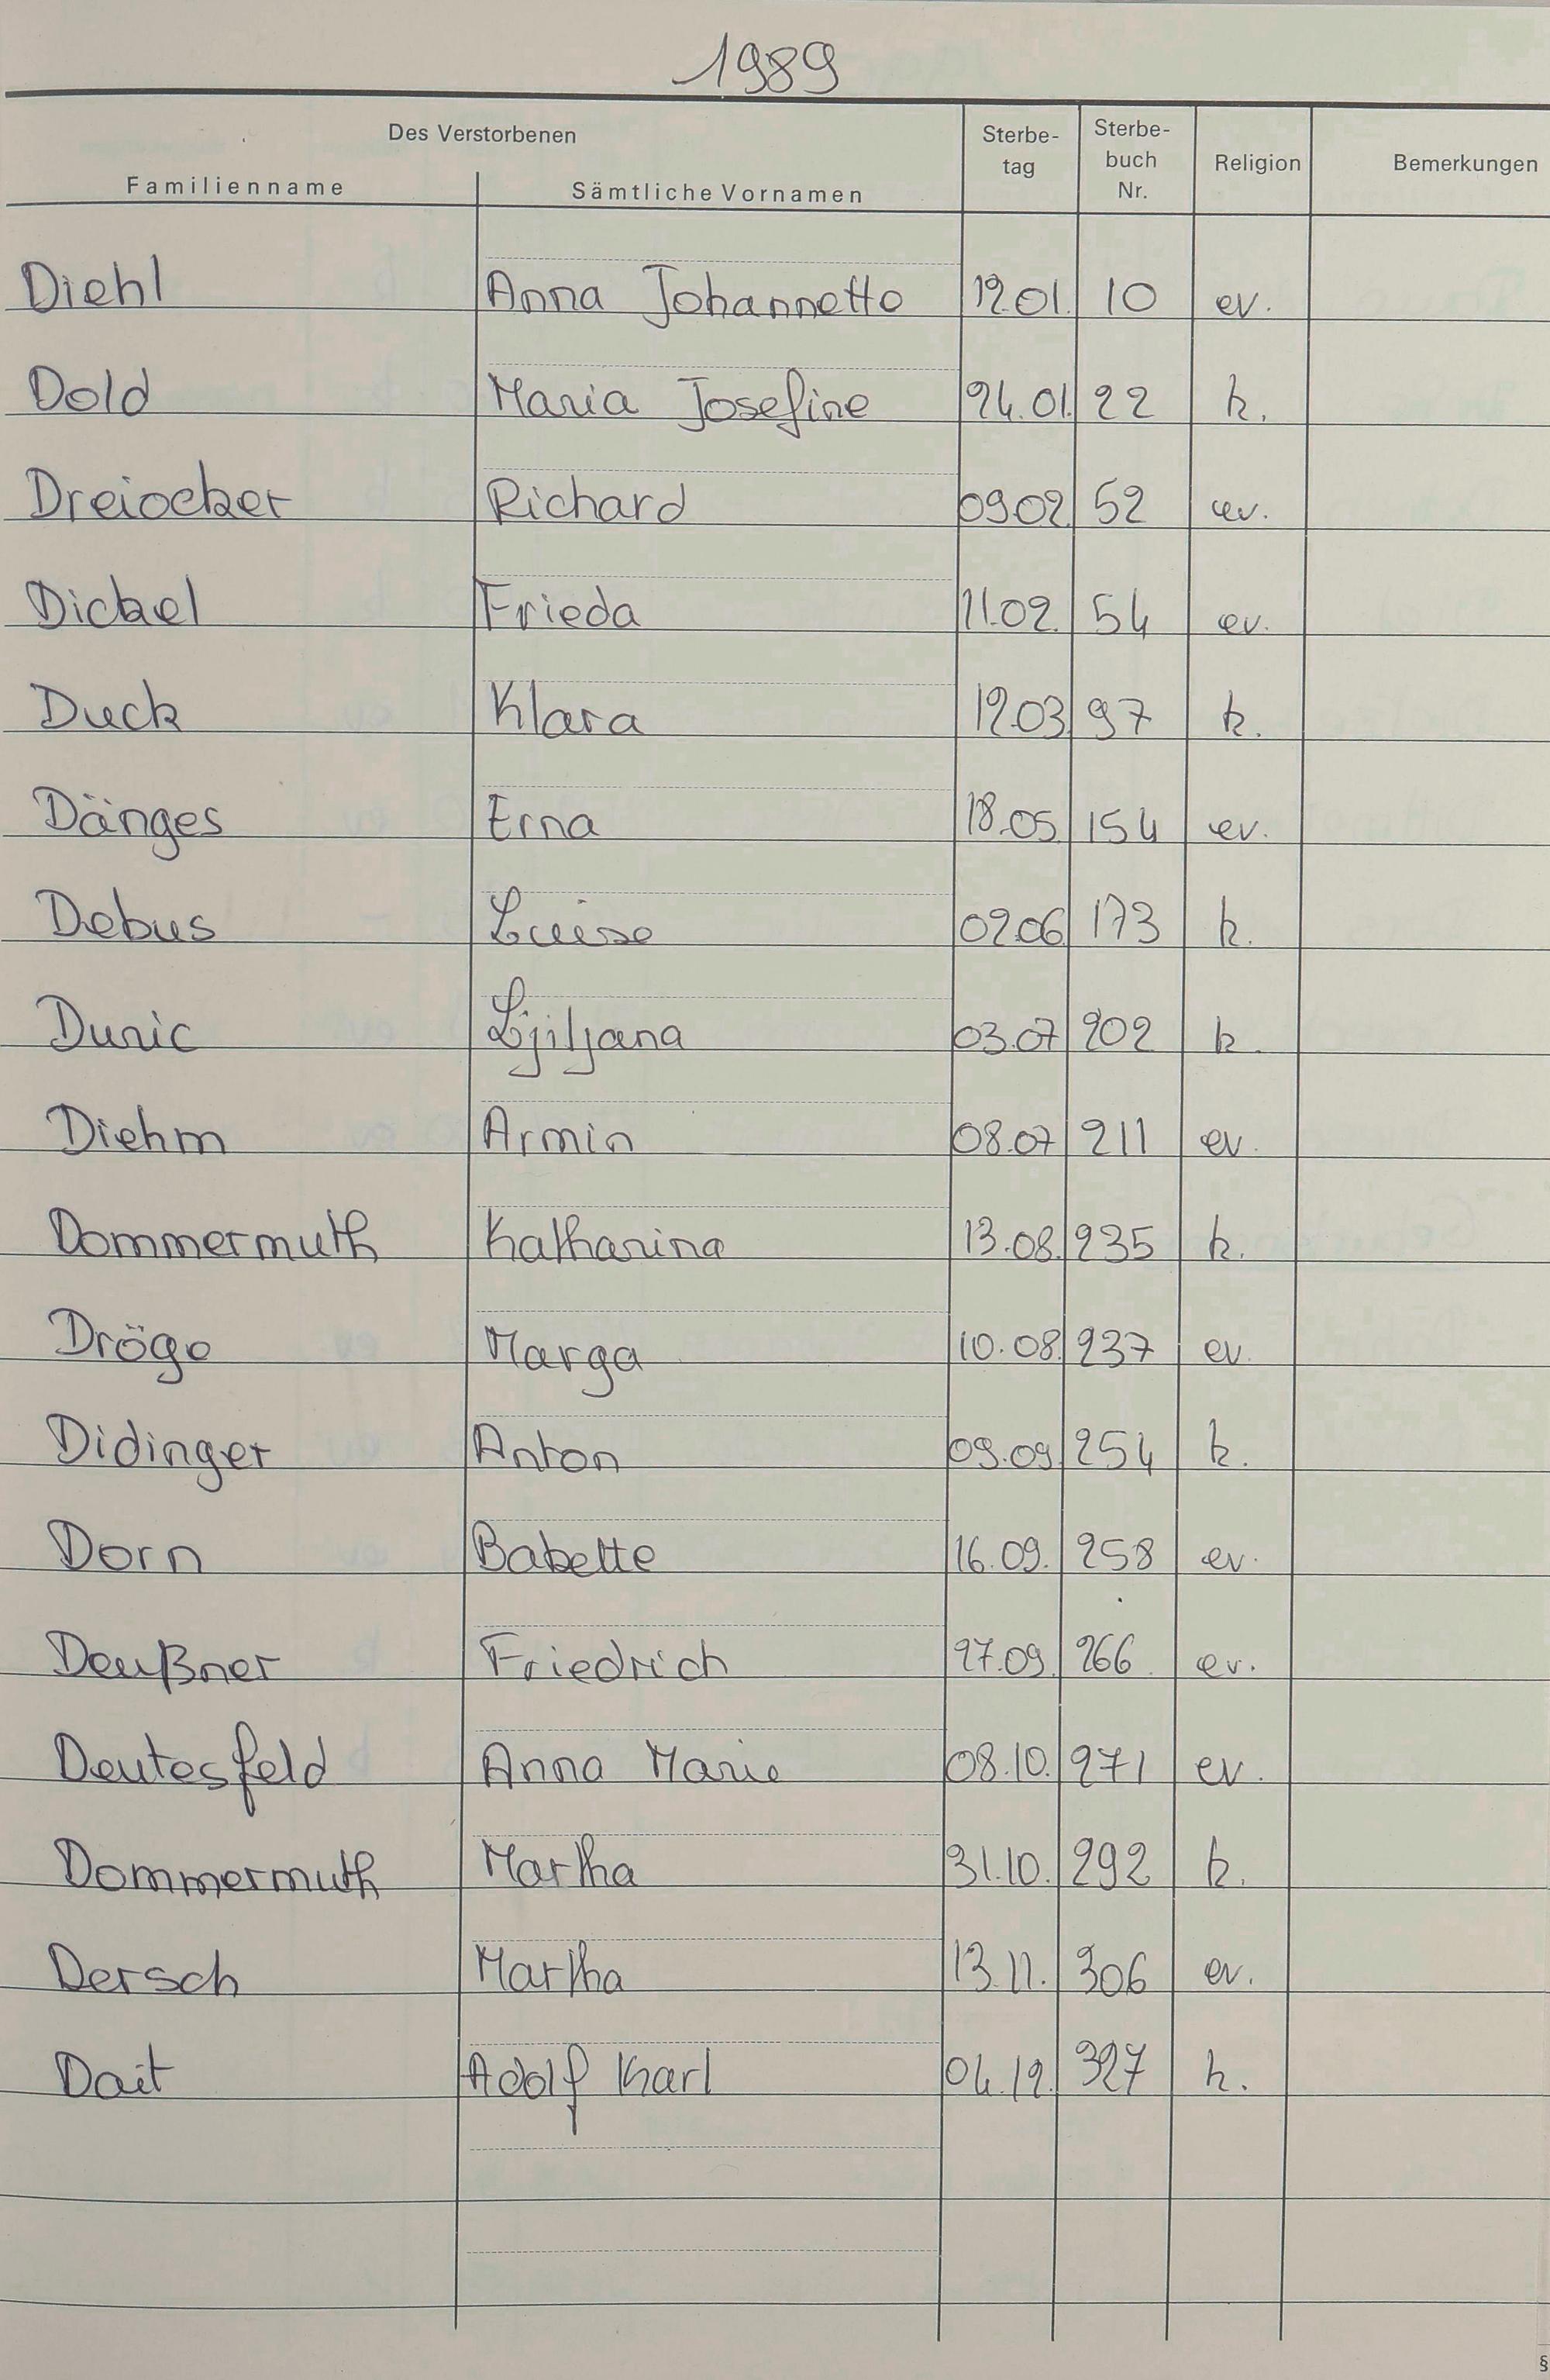 1989
Des Verstorbenen
Familienname Sämtliche Vornamen Sterbe-tag Sterbe-buch Nr. Religion Bemerkungen
Diehl Anna Johannette 12.01. 10 ev.
Dold Maria Josefine 24.01. 22 k.
Dreiocker Richard 09.02. 52 ev.
Dickel Frieda 11.02. 54 ev.
Duck Klara 12.03. 97 k.
Dänges Erna 18.05. 154 ev.
Debus Luise 02.06. 173 k.
Duric Ljiljana 03.07 202 k.
Diehm Armin 08.07 211 ev.
Dommermuth Katharina 13.08. 235 k.
Dröge Marga 10.08. 237 ev.
Didinger Anton 09.09. 254 k.
Dorn Babette 16.09. 258 ev.
Deußner Friedrich 27.09. 266 ev.
Deutesfeld Anna Marie 08.10. 271 ev.
Dommermuth Martha 31.10. 292 k.
Dersch Martha 13.11. 306 ev.
Dait Adolf Karl 04.12. 327 k.
§